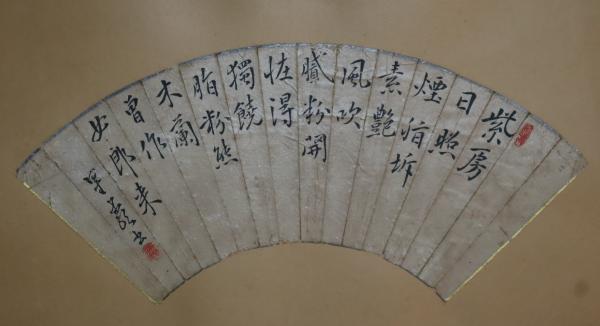 紫房
日照
煙脂坼
素艷
風吹
膩粉開
恠得
獨饒
脂粉態
木蘭
曾作
女郎来
書